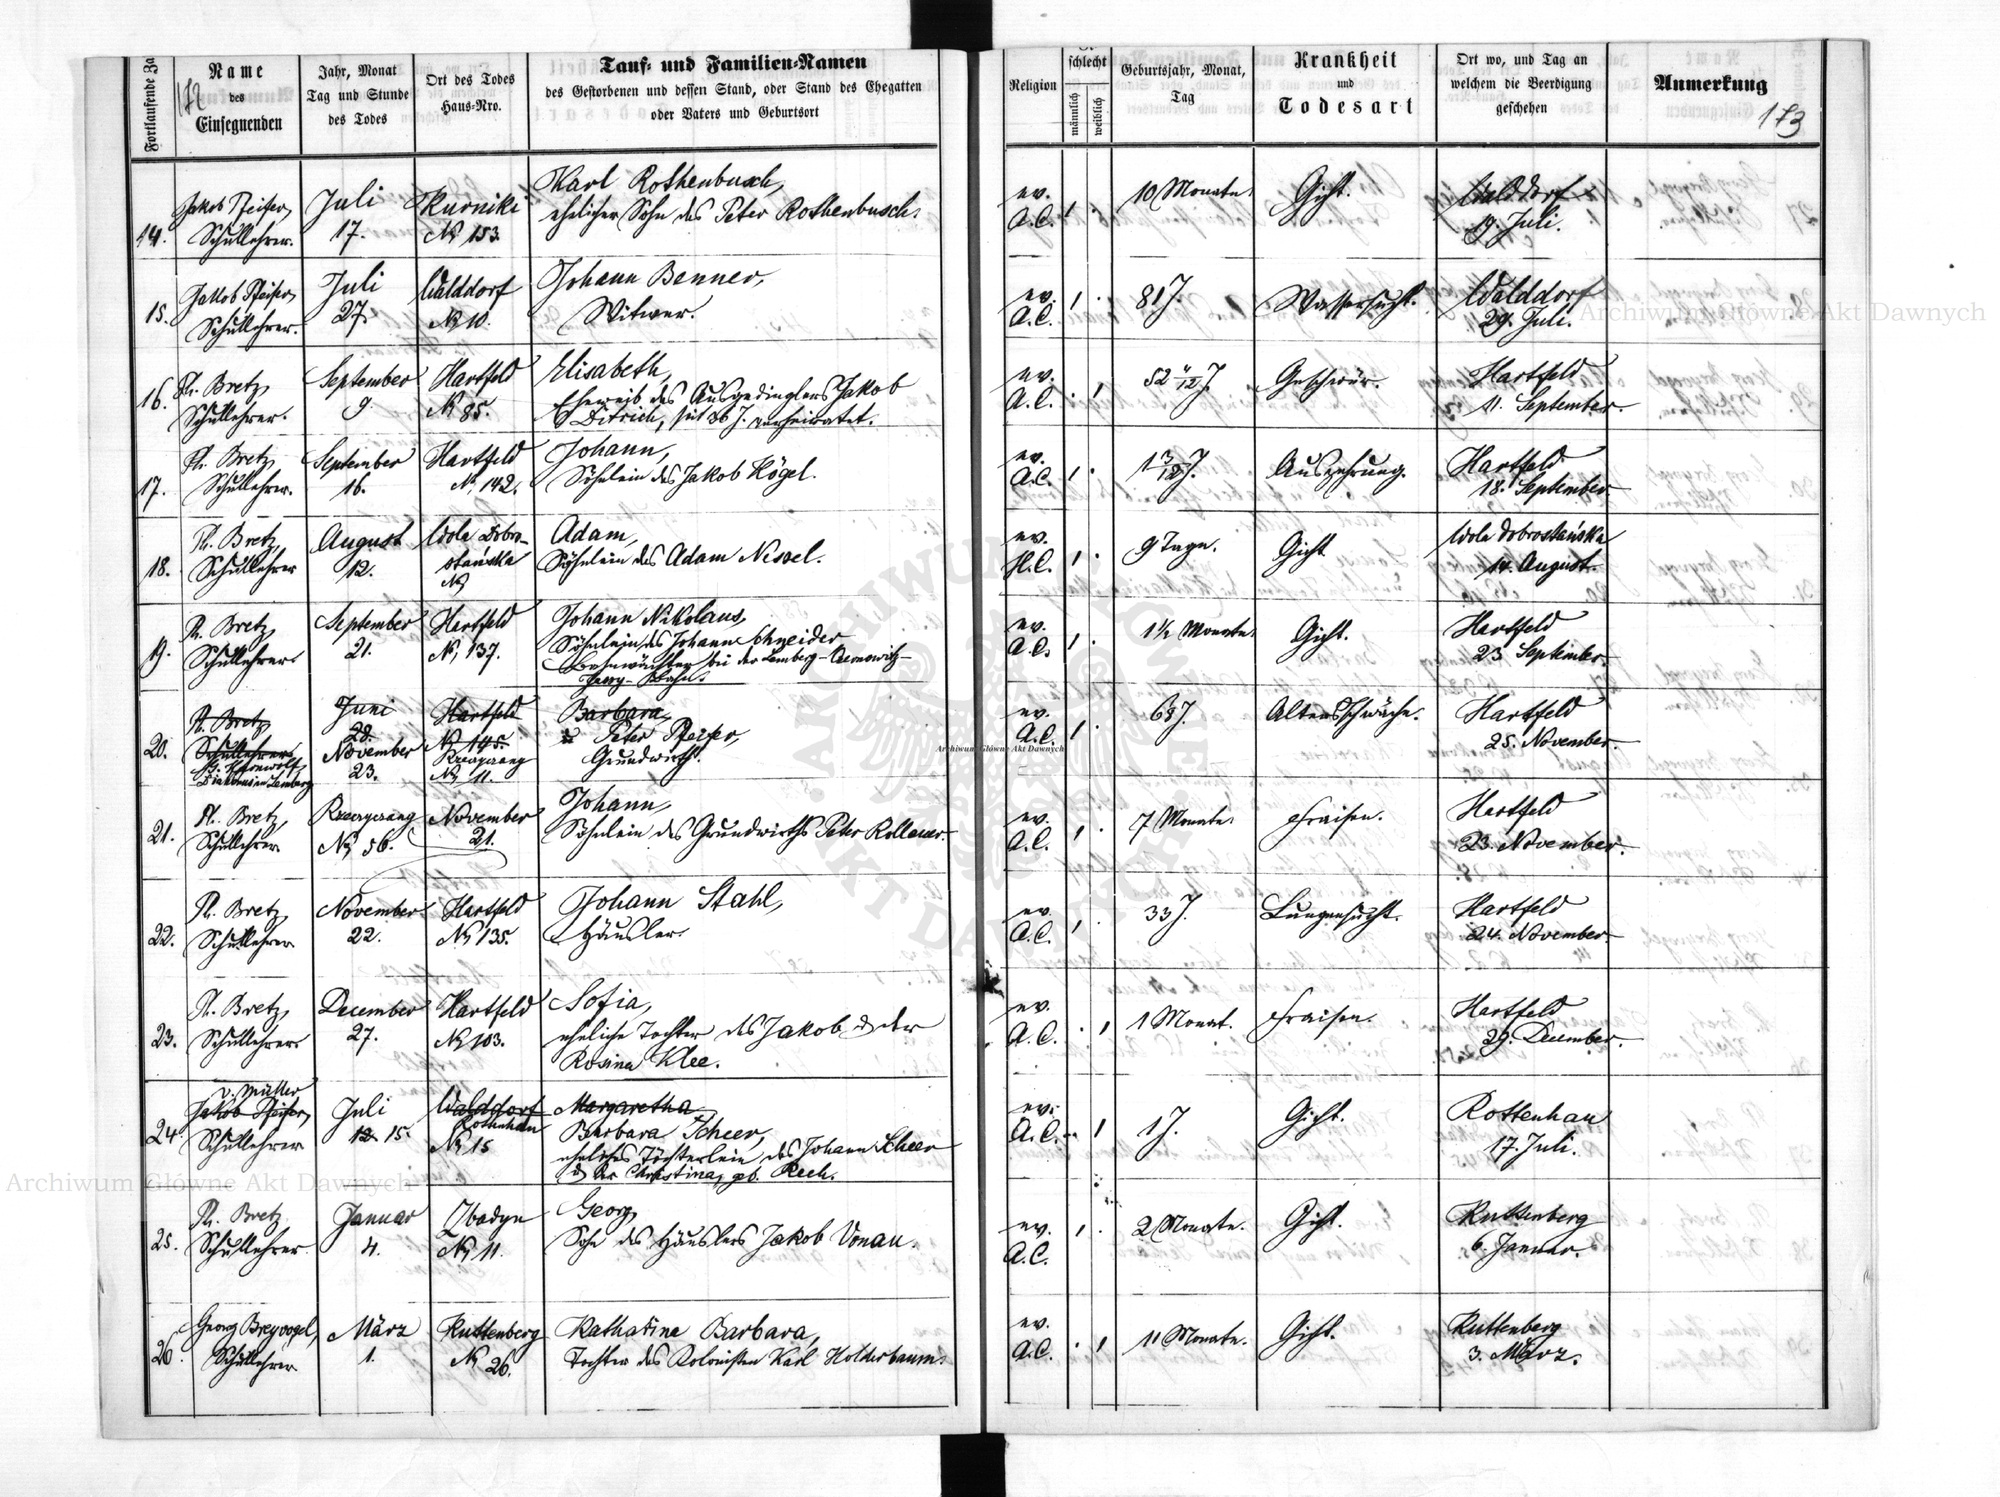 172
Fortlaufende Za
Name
des
Einsegnenden
Jahr, Monat
Tag und Stunde
des Todes
Ort des Todes
Haus-Nro.
Tauf- und Familien-Namen
des Gestorbenen und dessen Stand, oder Stand des Ehegatten
oder Vaters und Geburtsort
Religion
schlecht
männlich
weiblich
Geburtsjahr, Monat,
Tag
Krankheit
und
Todesart
Ort wo, und Tag an
welchem die Beerdigung
geschehen
Anmerkung
173
14.
Jakob Pfeifer,
Schullehrer.
Juli
17.
Kurniki
No 153.
Karl Rothenbusch,
ehelicher Sohn des Peter Rothenbusch.
ev.
A.C.
10 Monate.
Gicht.
Walddorf
19. Juli.
15.
Jakob Pfeifer,
Schullehrer.
Juli
27.
Walddorf
No 10.
Johann Benner,
Witwer.
ev.
A.C.
81 J.
Wassersucht.
Walddorf
29. Juli.
16.
Ph. Bretz,
Schullehrer.
September
9.
Hartfeld
No 85.
Elisabeth,
Eheweib des Ausgedinglers Jakob
Ditrich, seit 36 J. verheiratet.
ev.
A.C.
Geschwür.
Hartfeld
11. September.
17.
Ph. Bretz,
Schullehrer.
September
16.
Hartfeld
No 142.
Johann,
Söhnlein des Jakob Kögel.
ev.
A.C.
1 3/12 J.
Auszehrung.
Hartfeld
18. September.
18.
Ph. Bretz,
Schullehrer
August
12.
Wola Dobro-
stańska
No
Adam,
Söhnlein des Adam Nissel.
ev.
H.C.
9 Tage.
Gicht
Wola Dobrostańska
14. August
19.
Ph. Bretz,
Schullehrer
September
21.
Hartfeld
No 137.
Johann Nikolaus,
Söhnlein des Johann Schneider
Bahnwächter bei der Lemberg-Czernowitz-
Jassy-Bahn.
ev.
A.C.
1½ Monate.
Gicht.
Hartfeld
23 September.
20.
Ph. Bretz
Schullehrer
Diakonus in Lemberg
Juni
28.
November
23.
Hartfeld
No 145.
No 11.
Barbara,
Peter Pfeifer,
Grundwirth.
ev.
A.C.
68 J.
Altersschwäche.
Hartfeld
25. November.
21.
Ph. Bretz,
Schullehrer.
No 56.
November
21.
Johann,
Söhnlein des Grundwirths Peter Kollauer.
ev.
A.C.
7 Monate.
Fraisen.
Hartfeld
23. November.
22.
Ph. Bretz,
Schullehrer
November
22.
Hartfeld
No 135.
Johann Stahl,
Häusler.
ev.
A.C.
33 J.
Lungensucht.
Hartfeld
24. November.
23.
Ph. Bretz,
Schullehrer
December
27.
Hartfeld
No 103.
Sofia,
eheliche Tochter des Jakob & der
Rosina Klee.
ev.
A.C.
1 Monat.
Fraisen.
Hartfeld
29. December.
24.
v. Müller
Jakob Pfeifer,
Schullehrer
Juli
12. 15.
Walddorf
Rothenhan
No 15
Margaretha
Barbara Scheer,
eheliches Töchterlein des Johann Scheer
& der Christina, geb. Rech.
ev.
A.C.
1 J.
Gicht.
Rottenhan
17. Juli.
25.
Ph. Bretz
Schullehrer
Januar
4.
Zbadyn
No 11.
Georg,
Sohn des Häuslers Jakob Vonau.
ev.
A.C.
2 Monate.
Gicht.
Kuttenberg
6. Januar.
26.
Georg Breyvogel,
Schullehrer
März
1.
Kuttenberg
No 26.
Katharine Barbara,
Tochter des Kolonisten Karl Holderbaum.
ev.
A.C.
11 Monate.
Gicht.
Kuttenberg
3. März.
Archiwum Główne Akt Dawnych
Archiwum Główne Akt Dawnych
Archiwum Główne Akt Dawnych
ARCHIWUM GŁÓWNE AKT DAWNYCH